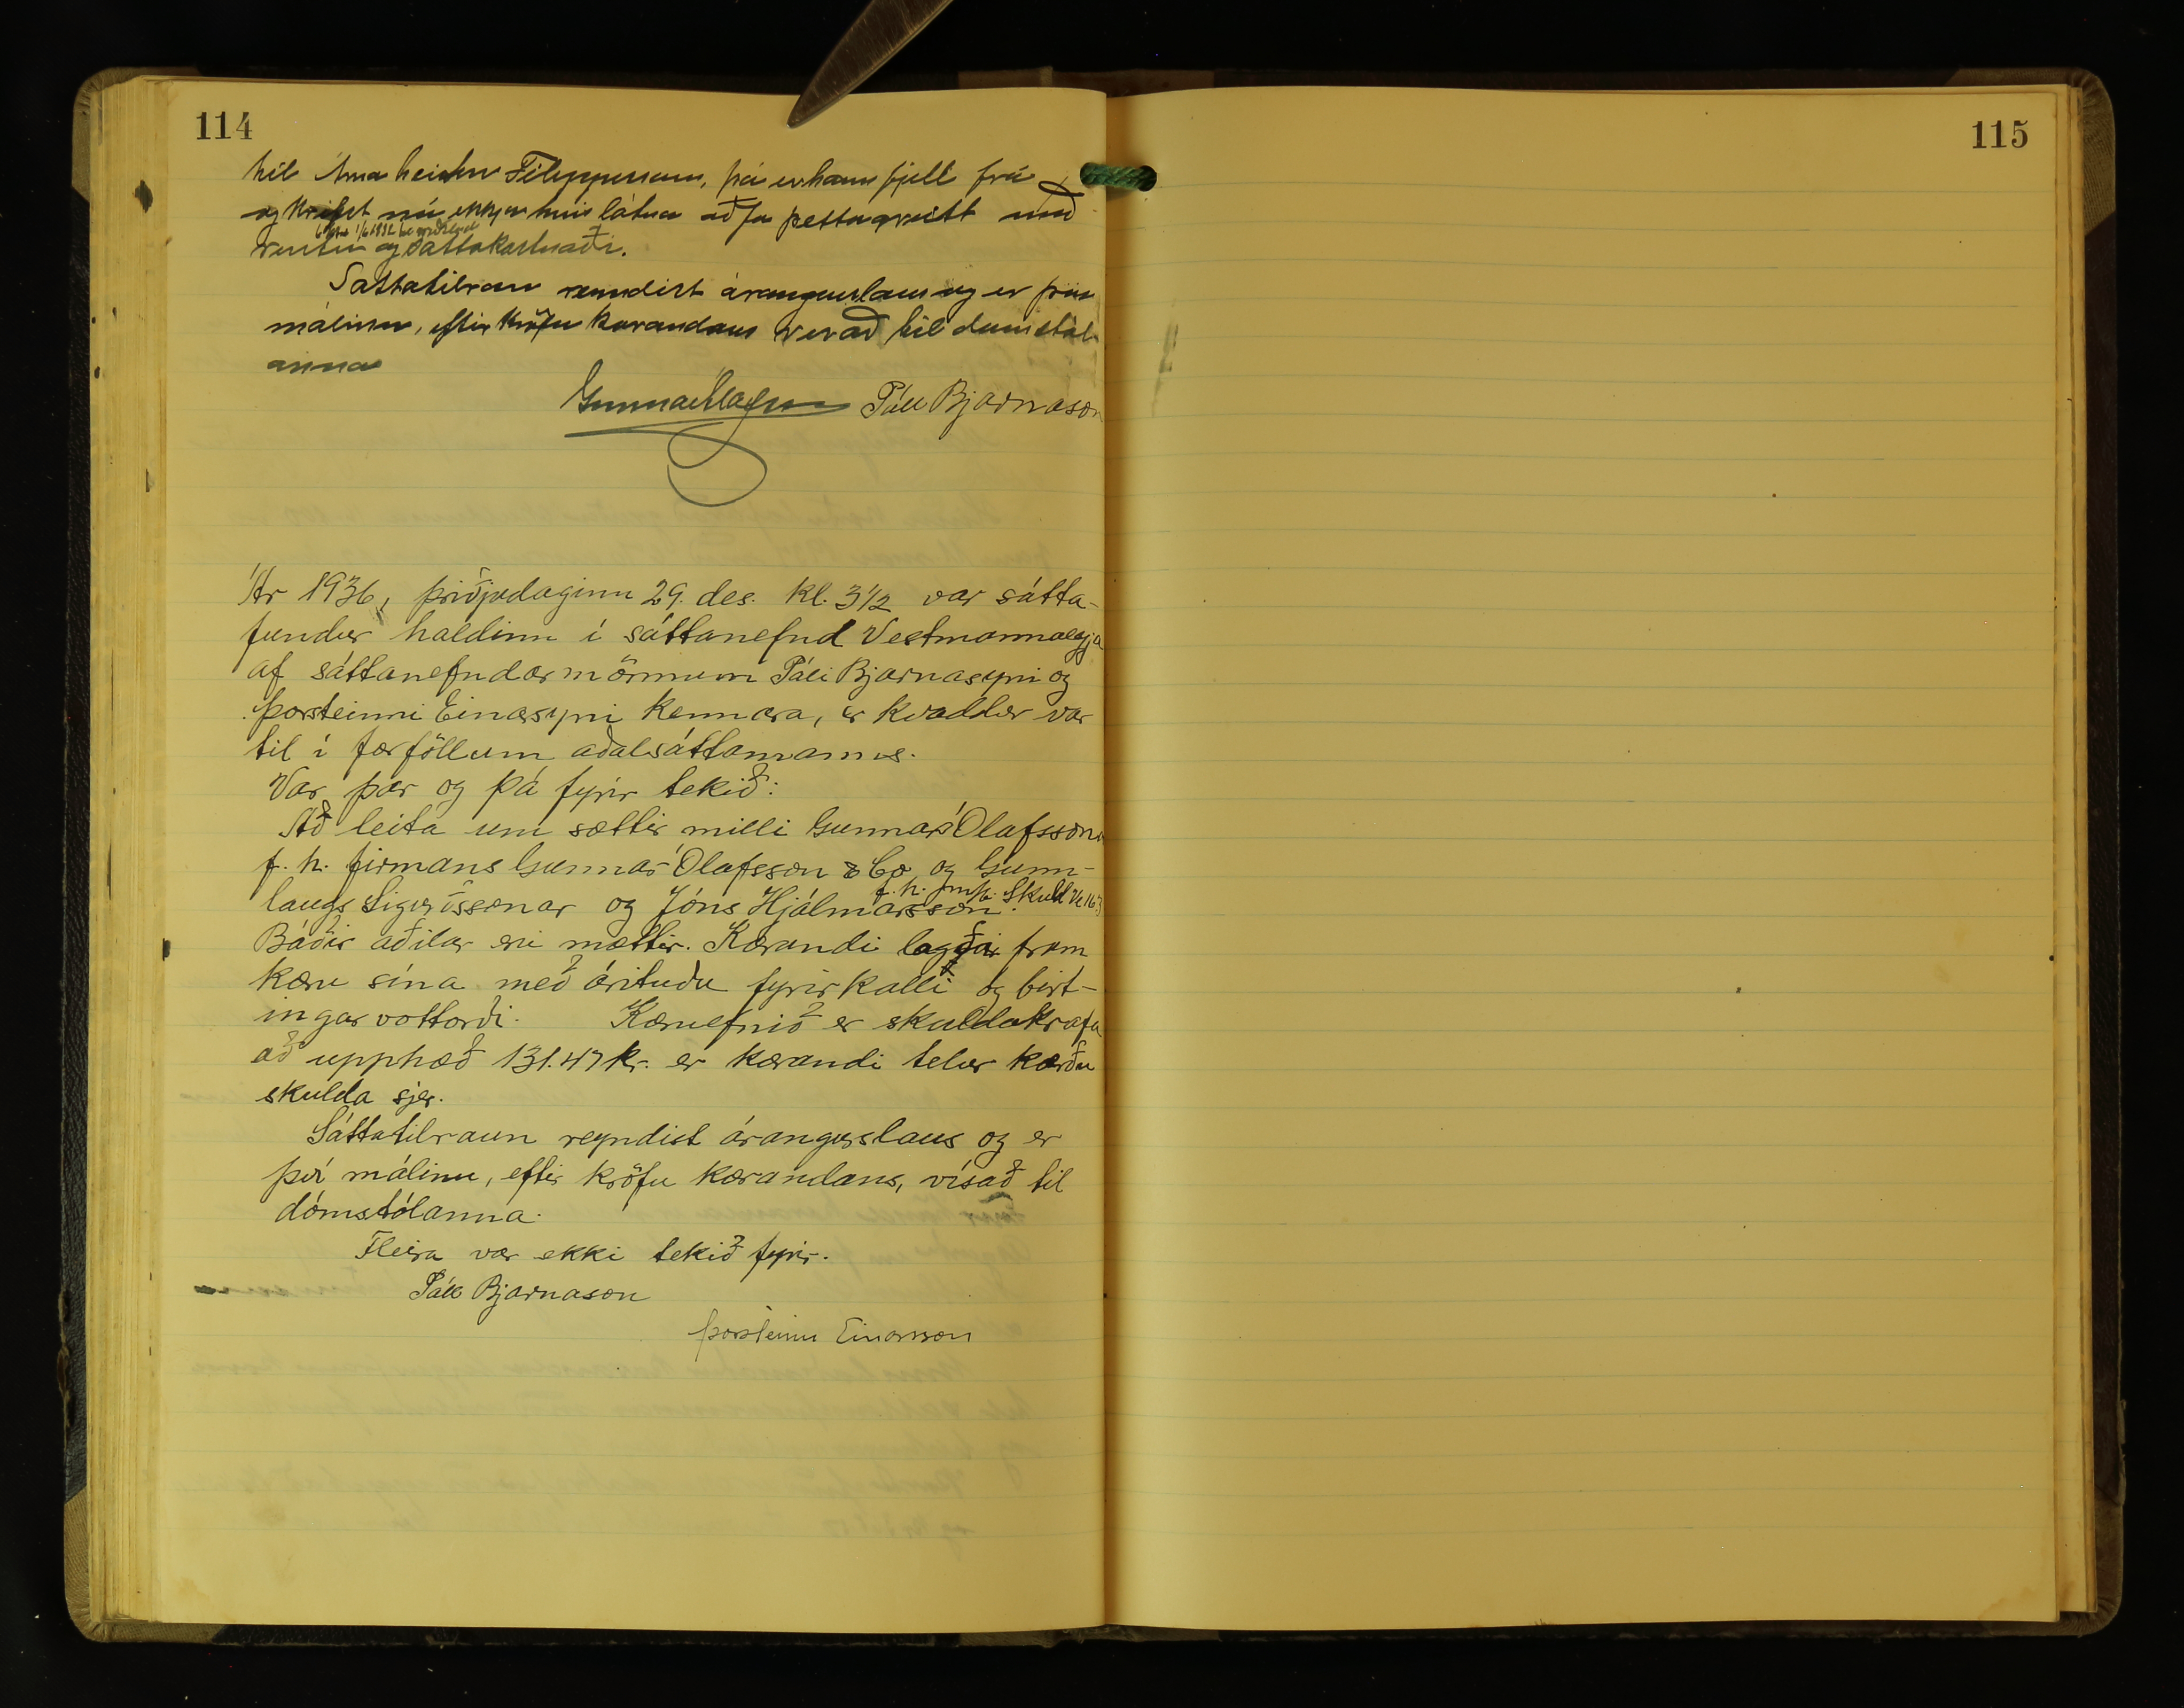 114
til Árna heitins Filippussonar, þá er hann fjell frá
og krefst nú ekkju hins látna að fá þetta greitt með
6% frá 1/6 1932
vöxtum og sáttakostnaði.
Sáttatilraun reyndist árangurslaus og er því
málinu, eftir kröfu kærandans vísað til dómstól-
anna
Gunnar Ólafsson Páll Bjarnason
Ár 1936, þriðjudaginn 29. des. kl. 3 1/2 var sátta-
fundur haldinn í sáttanefnd Vestmannaeyja
af sáttanefndarmönnum Páli Bjarnasyni og
Þorsteinni Einarsyni kennara, er kvaddur var
til í forföllum aðalsáttamanns.
Var þar og þá fyrir tekið:
Að leita um sættir milli Gunnars Ólafssonar
f. h. firmans Gunnar Ólafsson & Co. og Gunn-
f. h. m/b. Skuld Ve 163
laugs Sigurðssonar og Jóns Hjálmarsson.
Báðir aðilar eru mættir. Kærandi lagði fram
kæru sína með árituðu fyrirkalli og birt-
ingarvottorði. Kæruefnið er skuldakrafa
að upphæð 131.47 kr. er kærandi telur kærðu
skulda sjer.
Sáttatilraun reyndist árangurslaus og er
því málinu, eftir kröfu kærandans, vísað til
dómstólanna.
Fleira var ekki tekið fyrir.
Páll Bjarnason
Þorsteinn Einarsson
115